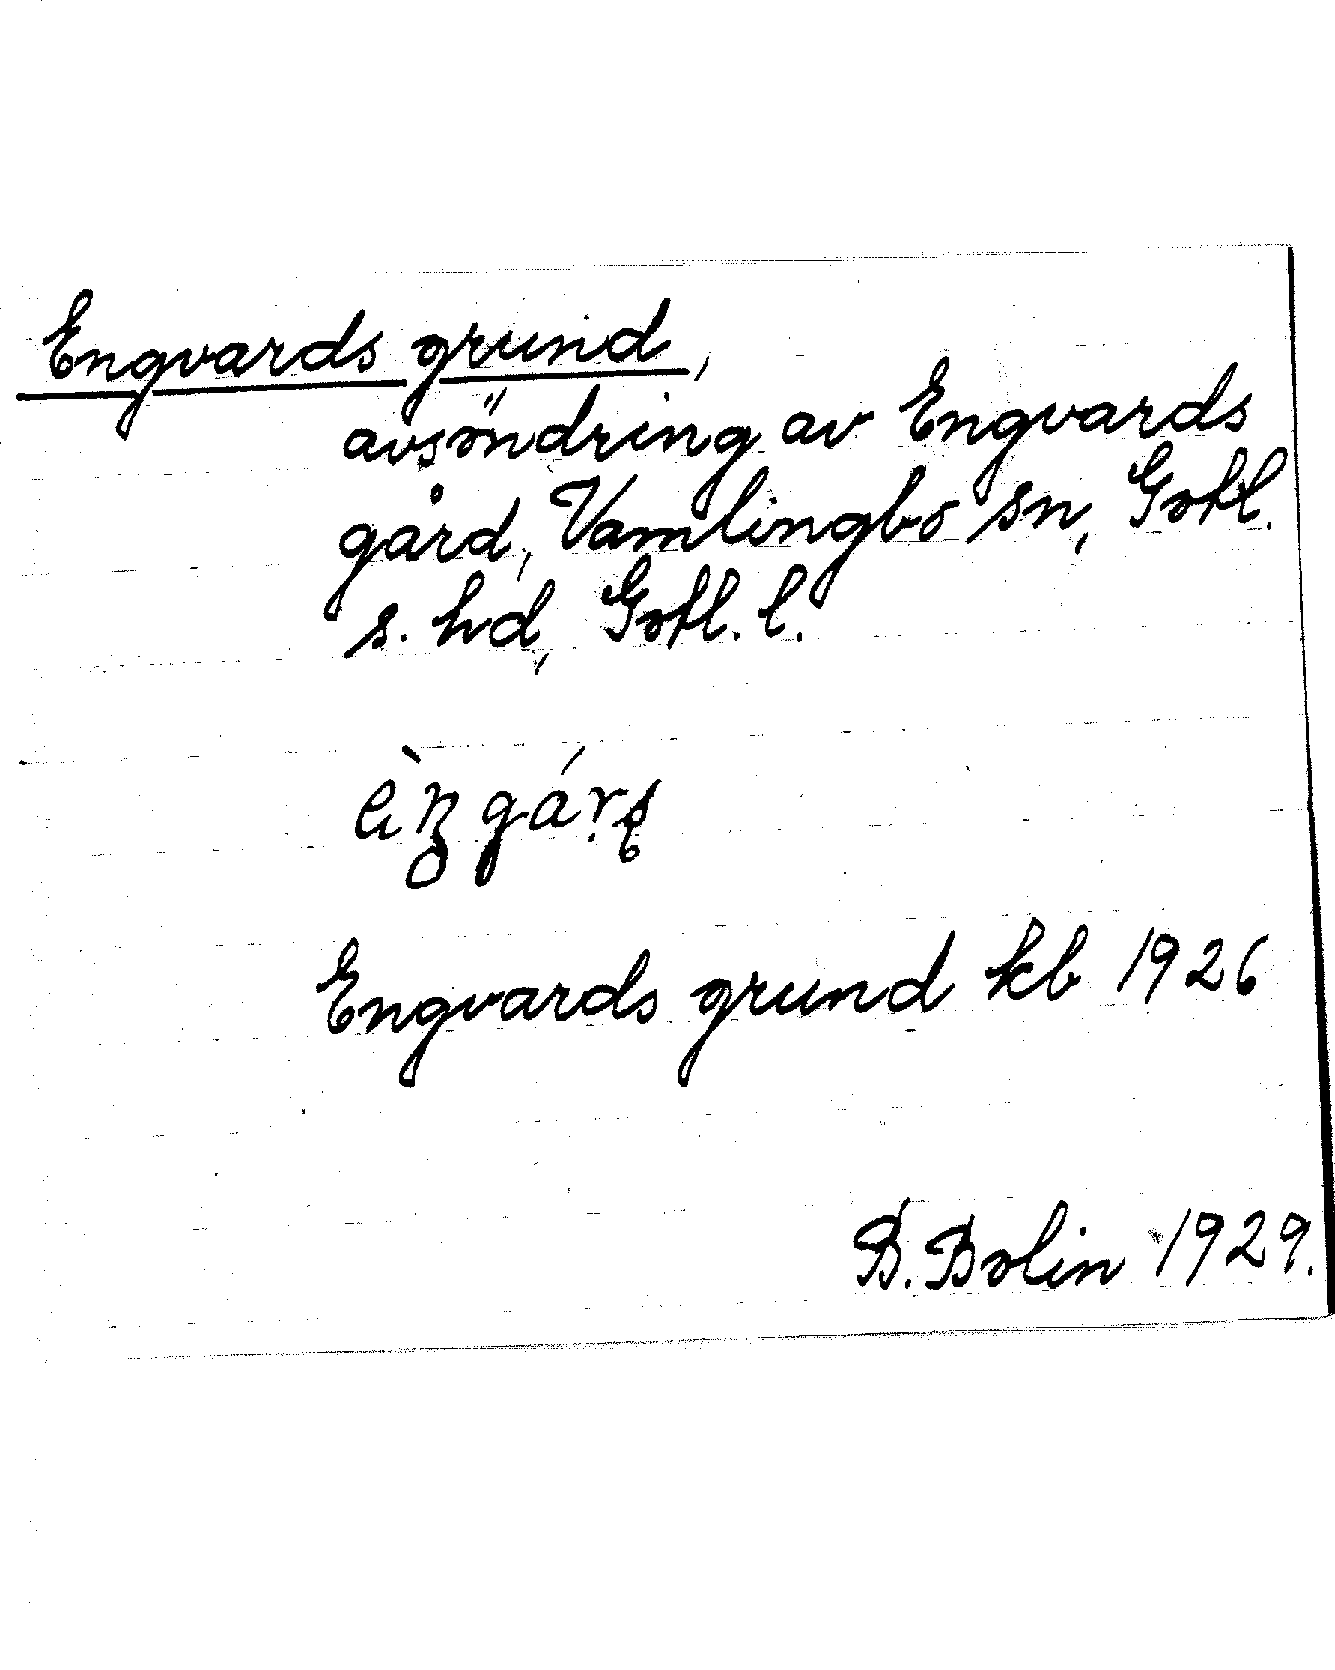 Engvards grund,
avsöndring av Engvards
gård, Vamlingbo sn, Gotl.
s. hd, Gotl. l.
Engvards grund kb 1926
B. Bolin 1929.